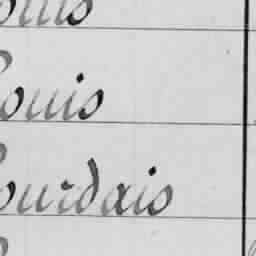 ouis
ouis
ourdais